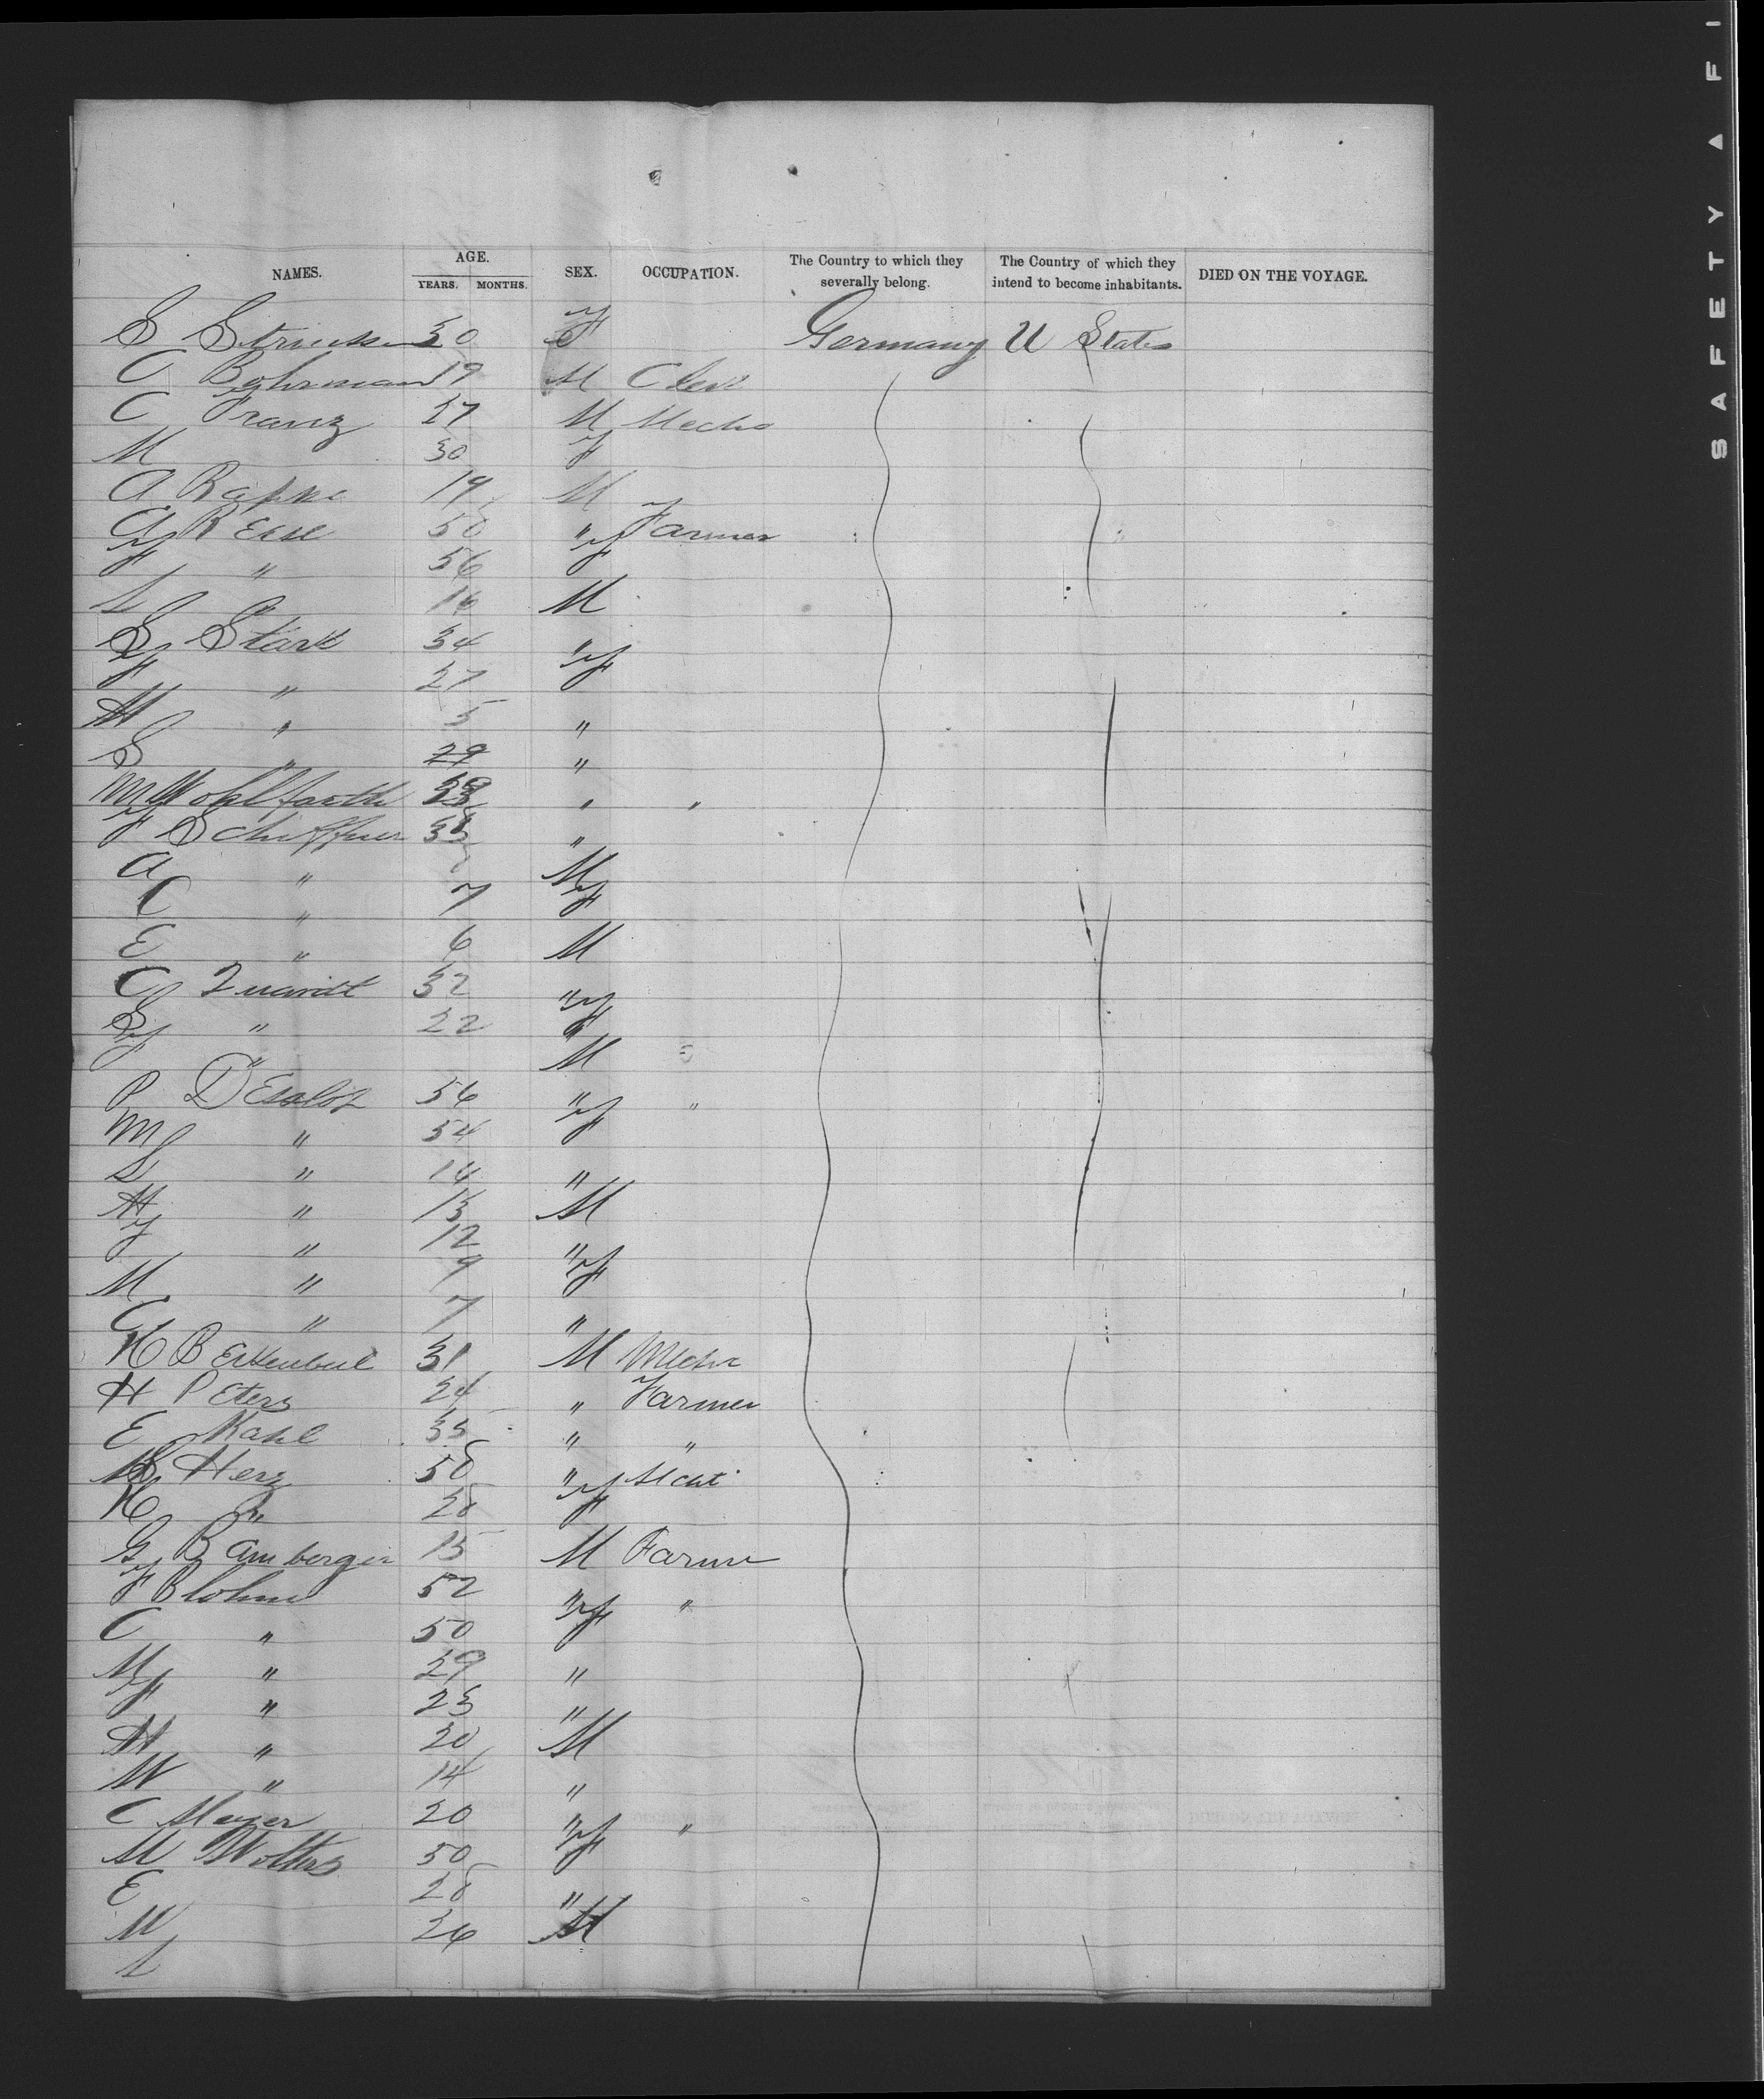 NAMES. AGE. YEARS. MONTHS. SEX. OCCUPATION. The Country to which they severally belong. The Country of which they intend to become inhabitants. DIED ON THE VOYAGE.
S 30 F Germany U States
C Bohrman 19 M Clerk
C Franz 27 M Mecha
M 30 F
A Rapke 19 M
A Reese 50 " Farmer
F " 56 F
L " 16 M
S Stark 34 "
F " 27 F
H " 5 "
S " 29 "
M Wohlfarth " "
F Schiffner 33 "
A " M
C " 7 F
E " 6 M
C Quandt 32 "
S " 22 F
F " M
P 56 " "
M " 54 F
S " 14 "
H " 13 M
F " 12 "
M " 9 F
C " 7 "
H 31 M Mecha
H Peters 24 " Farmer
E Kahl 35 " "
Herz 50 "
H " 28 F
G Bamberger 15 M Farmer
F Blohm 52 " "
C " 50 F
M " 29 "
F " 23 "
H " 20 M
W " 14 "
C Mayer 20 " "
M Wolters 50 F
E 28 "
W 26 M
L
SAFETY ▲ FI